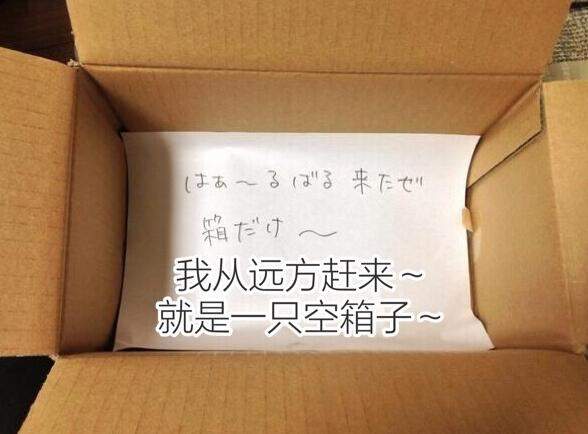 はぁ～るばる 来たぜ
箱だけ～
我从远方赶来～
就是一只空箱子～